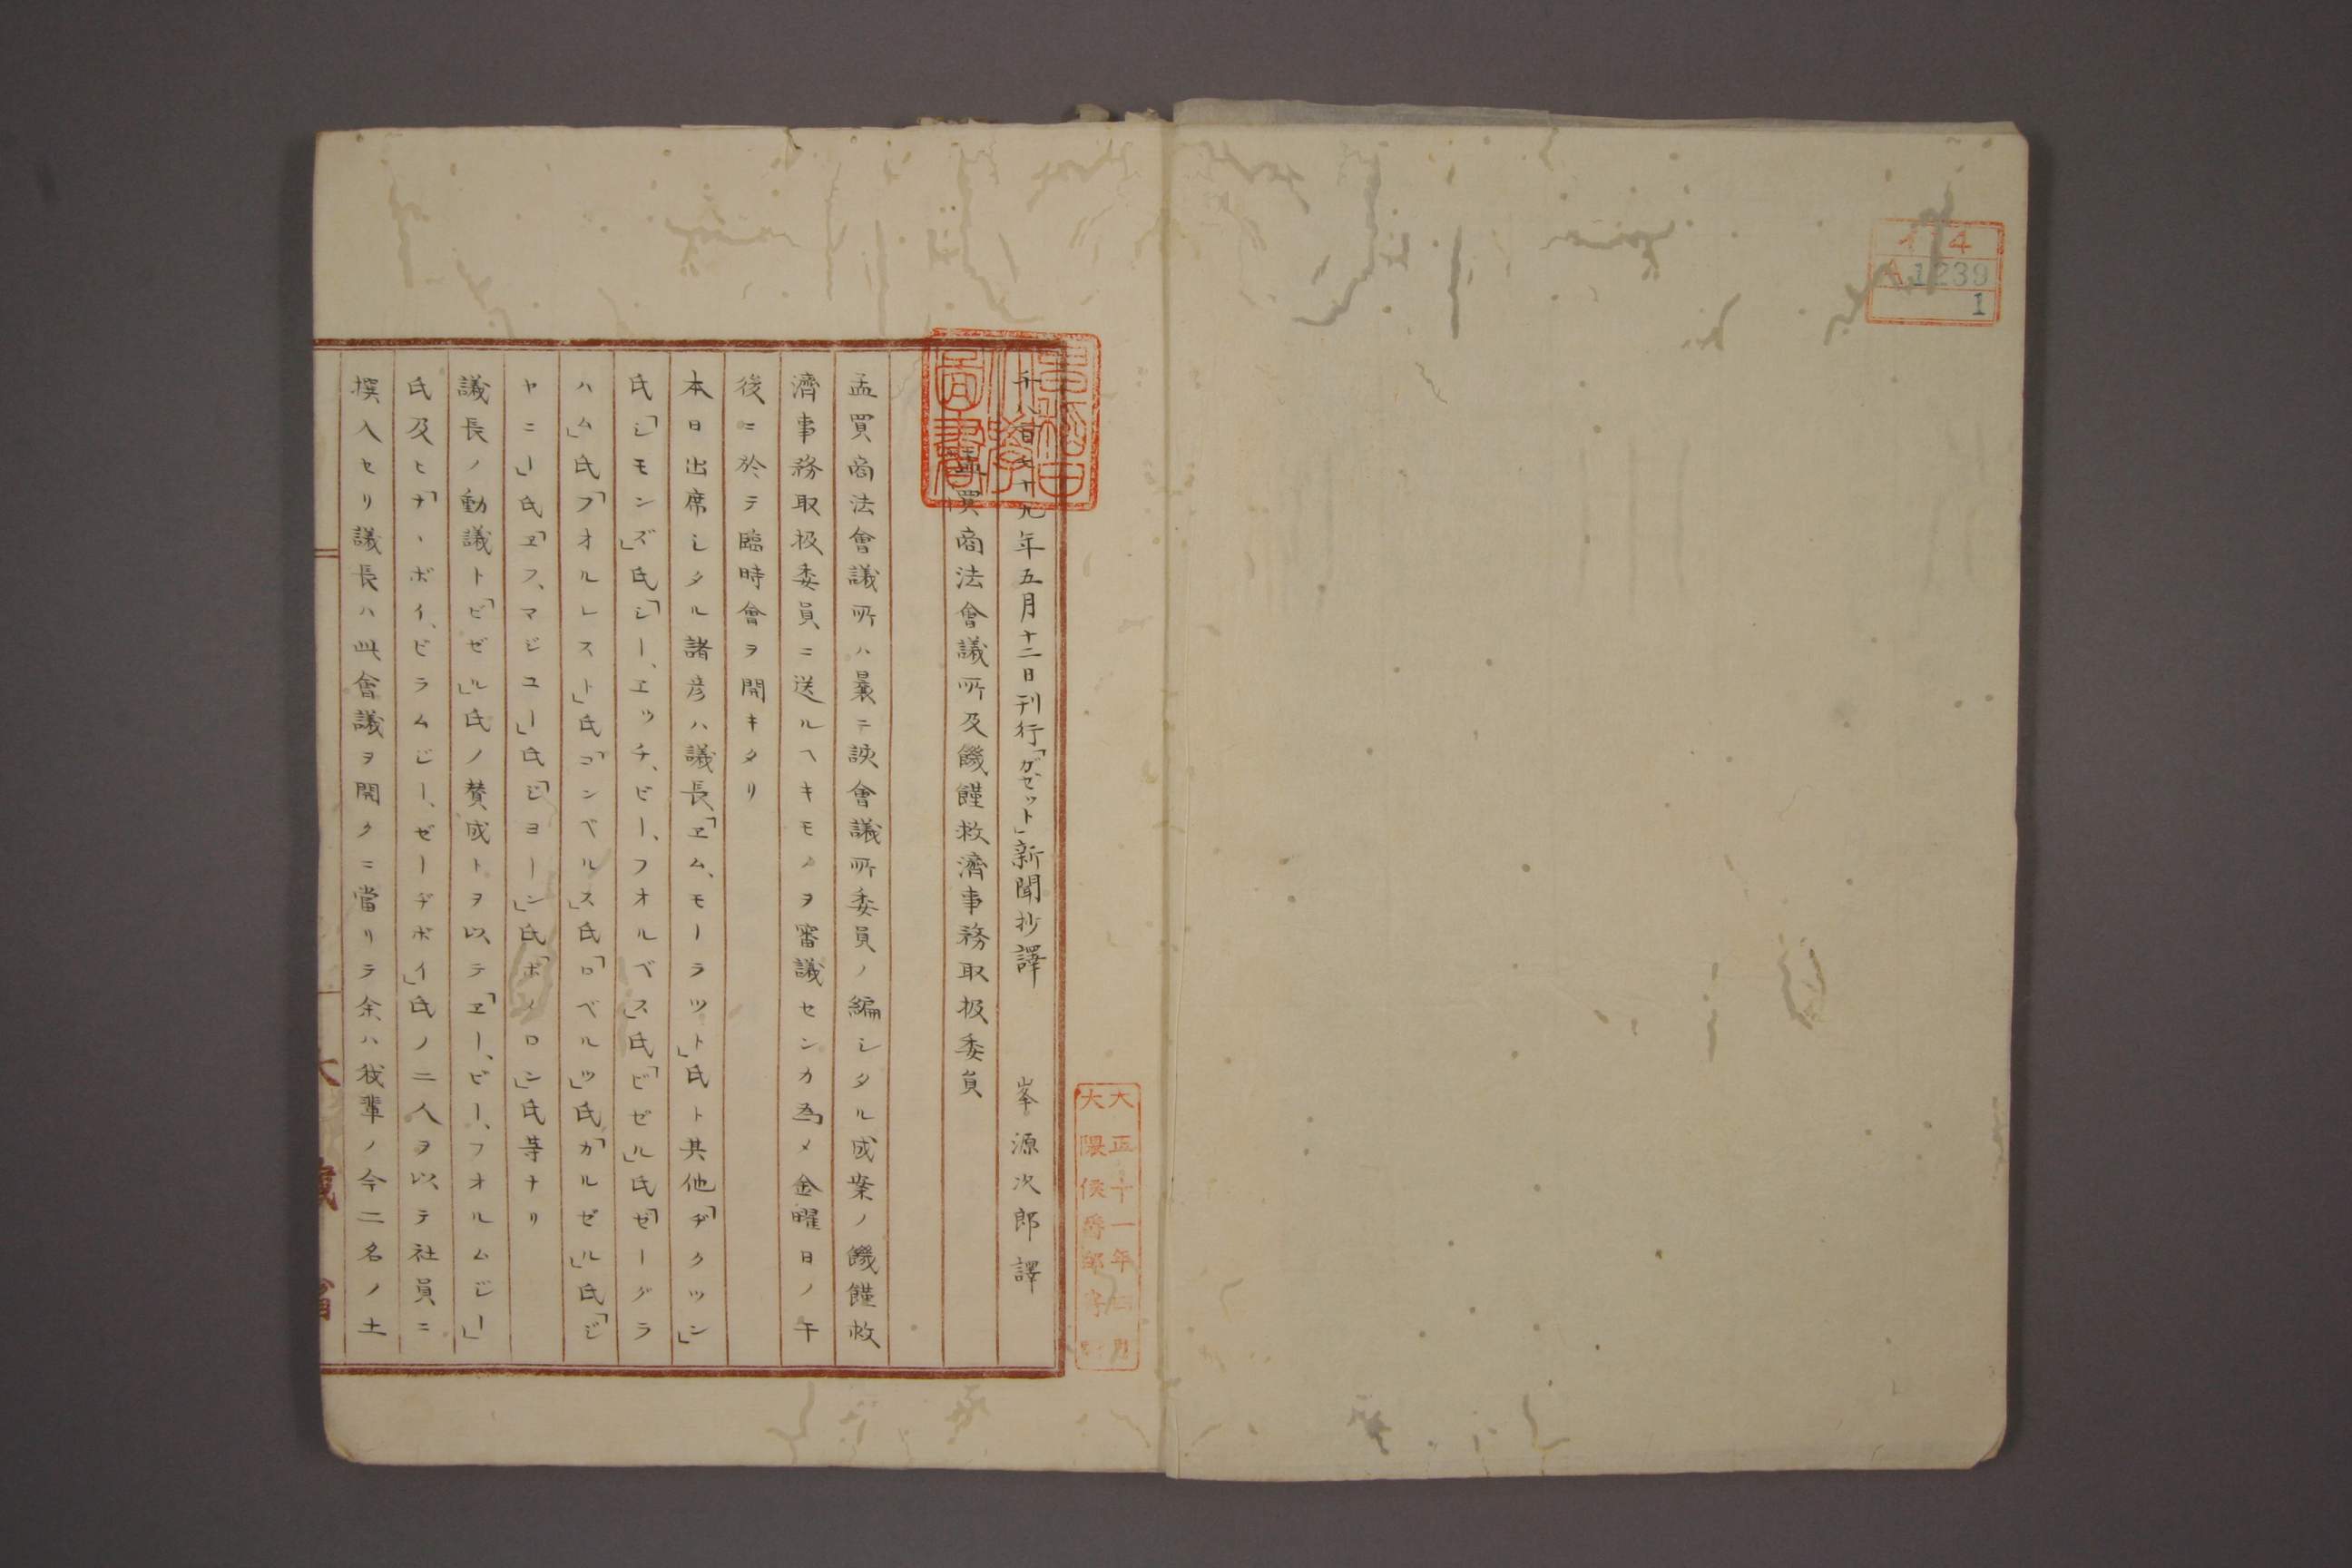 イ 4
A1239
1
大正十一年
大隈侯爵邸寄
千八百七十九年五月十二日刊行「ガゼット」新聞抄譯 峯源次郎譯
孟買商法會議所及饑饉救濟事務取扱委員
孟買商法會議所ハ曩ニ該會議所委員ノ編シタル成案ノ饑饉救
濟事務取扱委員ニ送ルヘキモノヲ審議センカ爲メ金曜日ノ午
後ニ於テ臨時會ヲ開キタリ
本日出席シタル諸彦ハ議長「ヱム、モーラット」氏ト其他「ヂクソン」
氏「シモンズ」氏「シー、エッチ、ビー、フオルベス」氏「ビゼル」氏「ゼーグラ
ハム」氏「フオルレスト」氏「コンベルス」氏「ロベルツ」氏「カルゼル」氏「ジ
ヤニー」氏「ヱフ、マジユー」氏「ジヨーン」氏「ボノロン」氏等ナリ
議長ノ動議ト「ビゼル」氏ノ賛成トヲ以テ「ヱー、ビー、フオルムジー」
氏及ヒ「ナ、ボイ、ビラムジー、ゼーヂボイ」氏ノ二人ヲ以テ社員ニ
撰入セリ議長ハ此會議ヲ開クニ當リテ余ハ我輩ノ今二名ノ土
大藏省